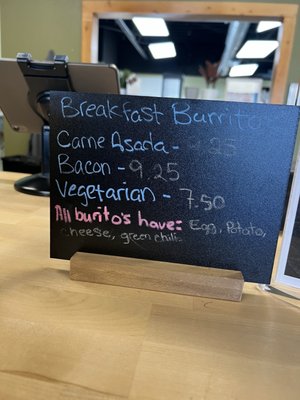 Breakfast Burrito
Carne Asada - .25
Bacon - 9.25
Vegetarian - 7.50
All burito's have: Egg, Potato,
cheese, green chili